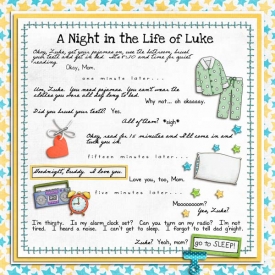 A Night in the Life of Luke
Okay, Luke, get your pajamas on, use the bathroom, brush
your teeth and get in bed. It's 8:30 and time for quiet
reading.
Okay, Mom.
one minute later....
Um, Luke. You need pajamas. You can't wear the
clothes you wore all day long to bed.
Why not... oh okaaaay.
Did you brush your teeth? Yes.
All of them? *sigh*
Okay, read for 15 minutes and I'll come in and
tuck you in.
fifteen minutes later....
Goodnight, Buddy. I love you.
Love you, too, Mom.
five minutes later....
Moooooooom?
Yes, Luke?
I'm thirsty. Is my alarm clock set? Can you turn on my radio? I'm not
tired. I heard a noise. I can't get to sleep. I forgot to tell dad g'night.
Luke? Yeah, mom?
go to SLEEP!